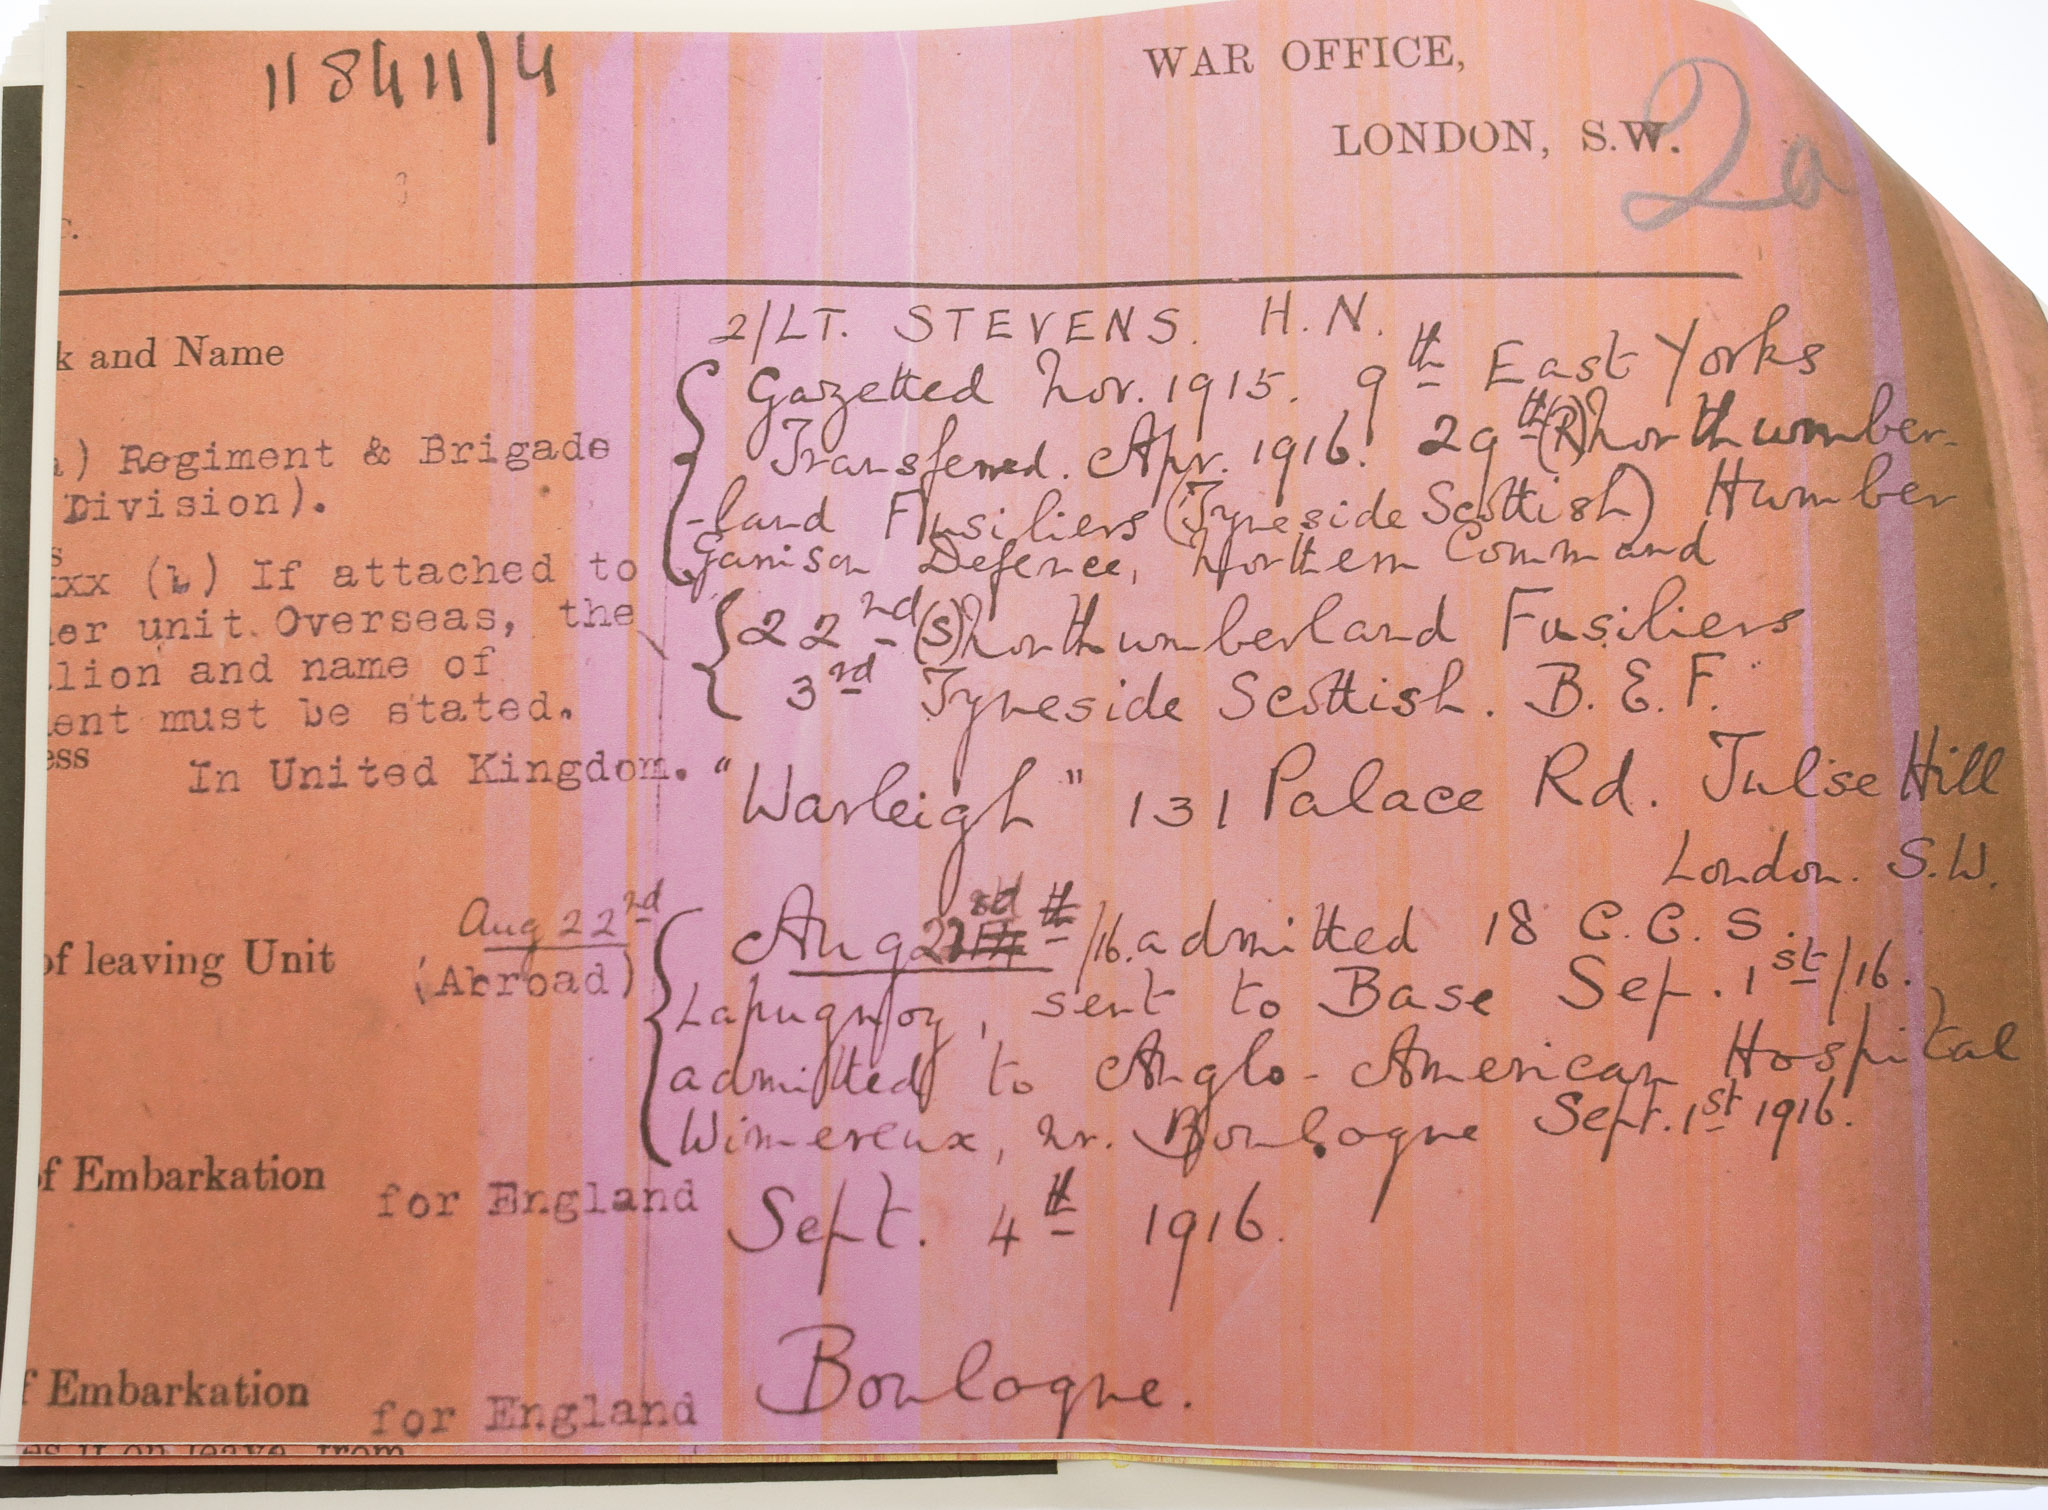 118411/4
WAR OFFICE,
LONDON, S.W.
2a
k and Name
2/LT. STEVENS. H.N.
) Regiment & Brigade
Division).
Gazetted Nov. 1915. 9th East Yorks
Transferred. Apr. 1916. 29th (R) Northumber-
-land Fusiliers (Tyneside Scottish) Humber
Garrison Defence, Northern Command
s
xxx (b) If attached to
er unit Overseas, the
lion and name of
ent must be stated.
22nd (S) Northumberland Fusiliers
3rd Tyneside Scottish. B.E.F.
ess
In United Kingdom.
"Warleigh" 131 Palace Rd. Tulse Hill
London. S.W.
of leaving Unit
Aug 22nd
(Abroad)
Aug 22nd th/16. admitted 18 C.C.S.
Lapugnoy, sent to Base Sep. 1st/16.
admitted to Anglo-American Hospital
Wimereux, nr. Boulogne Sept. 1st 1916.
of Embarkation for England
Sept. 4th 1916.
f Embarkation for England
Boulogne.
es if on leave from